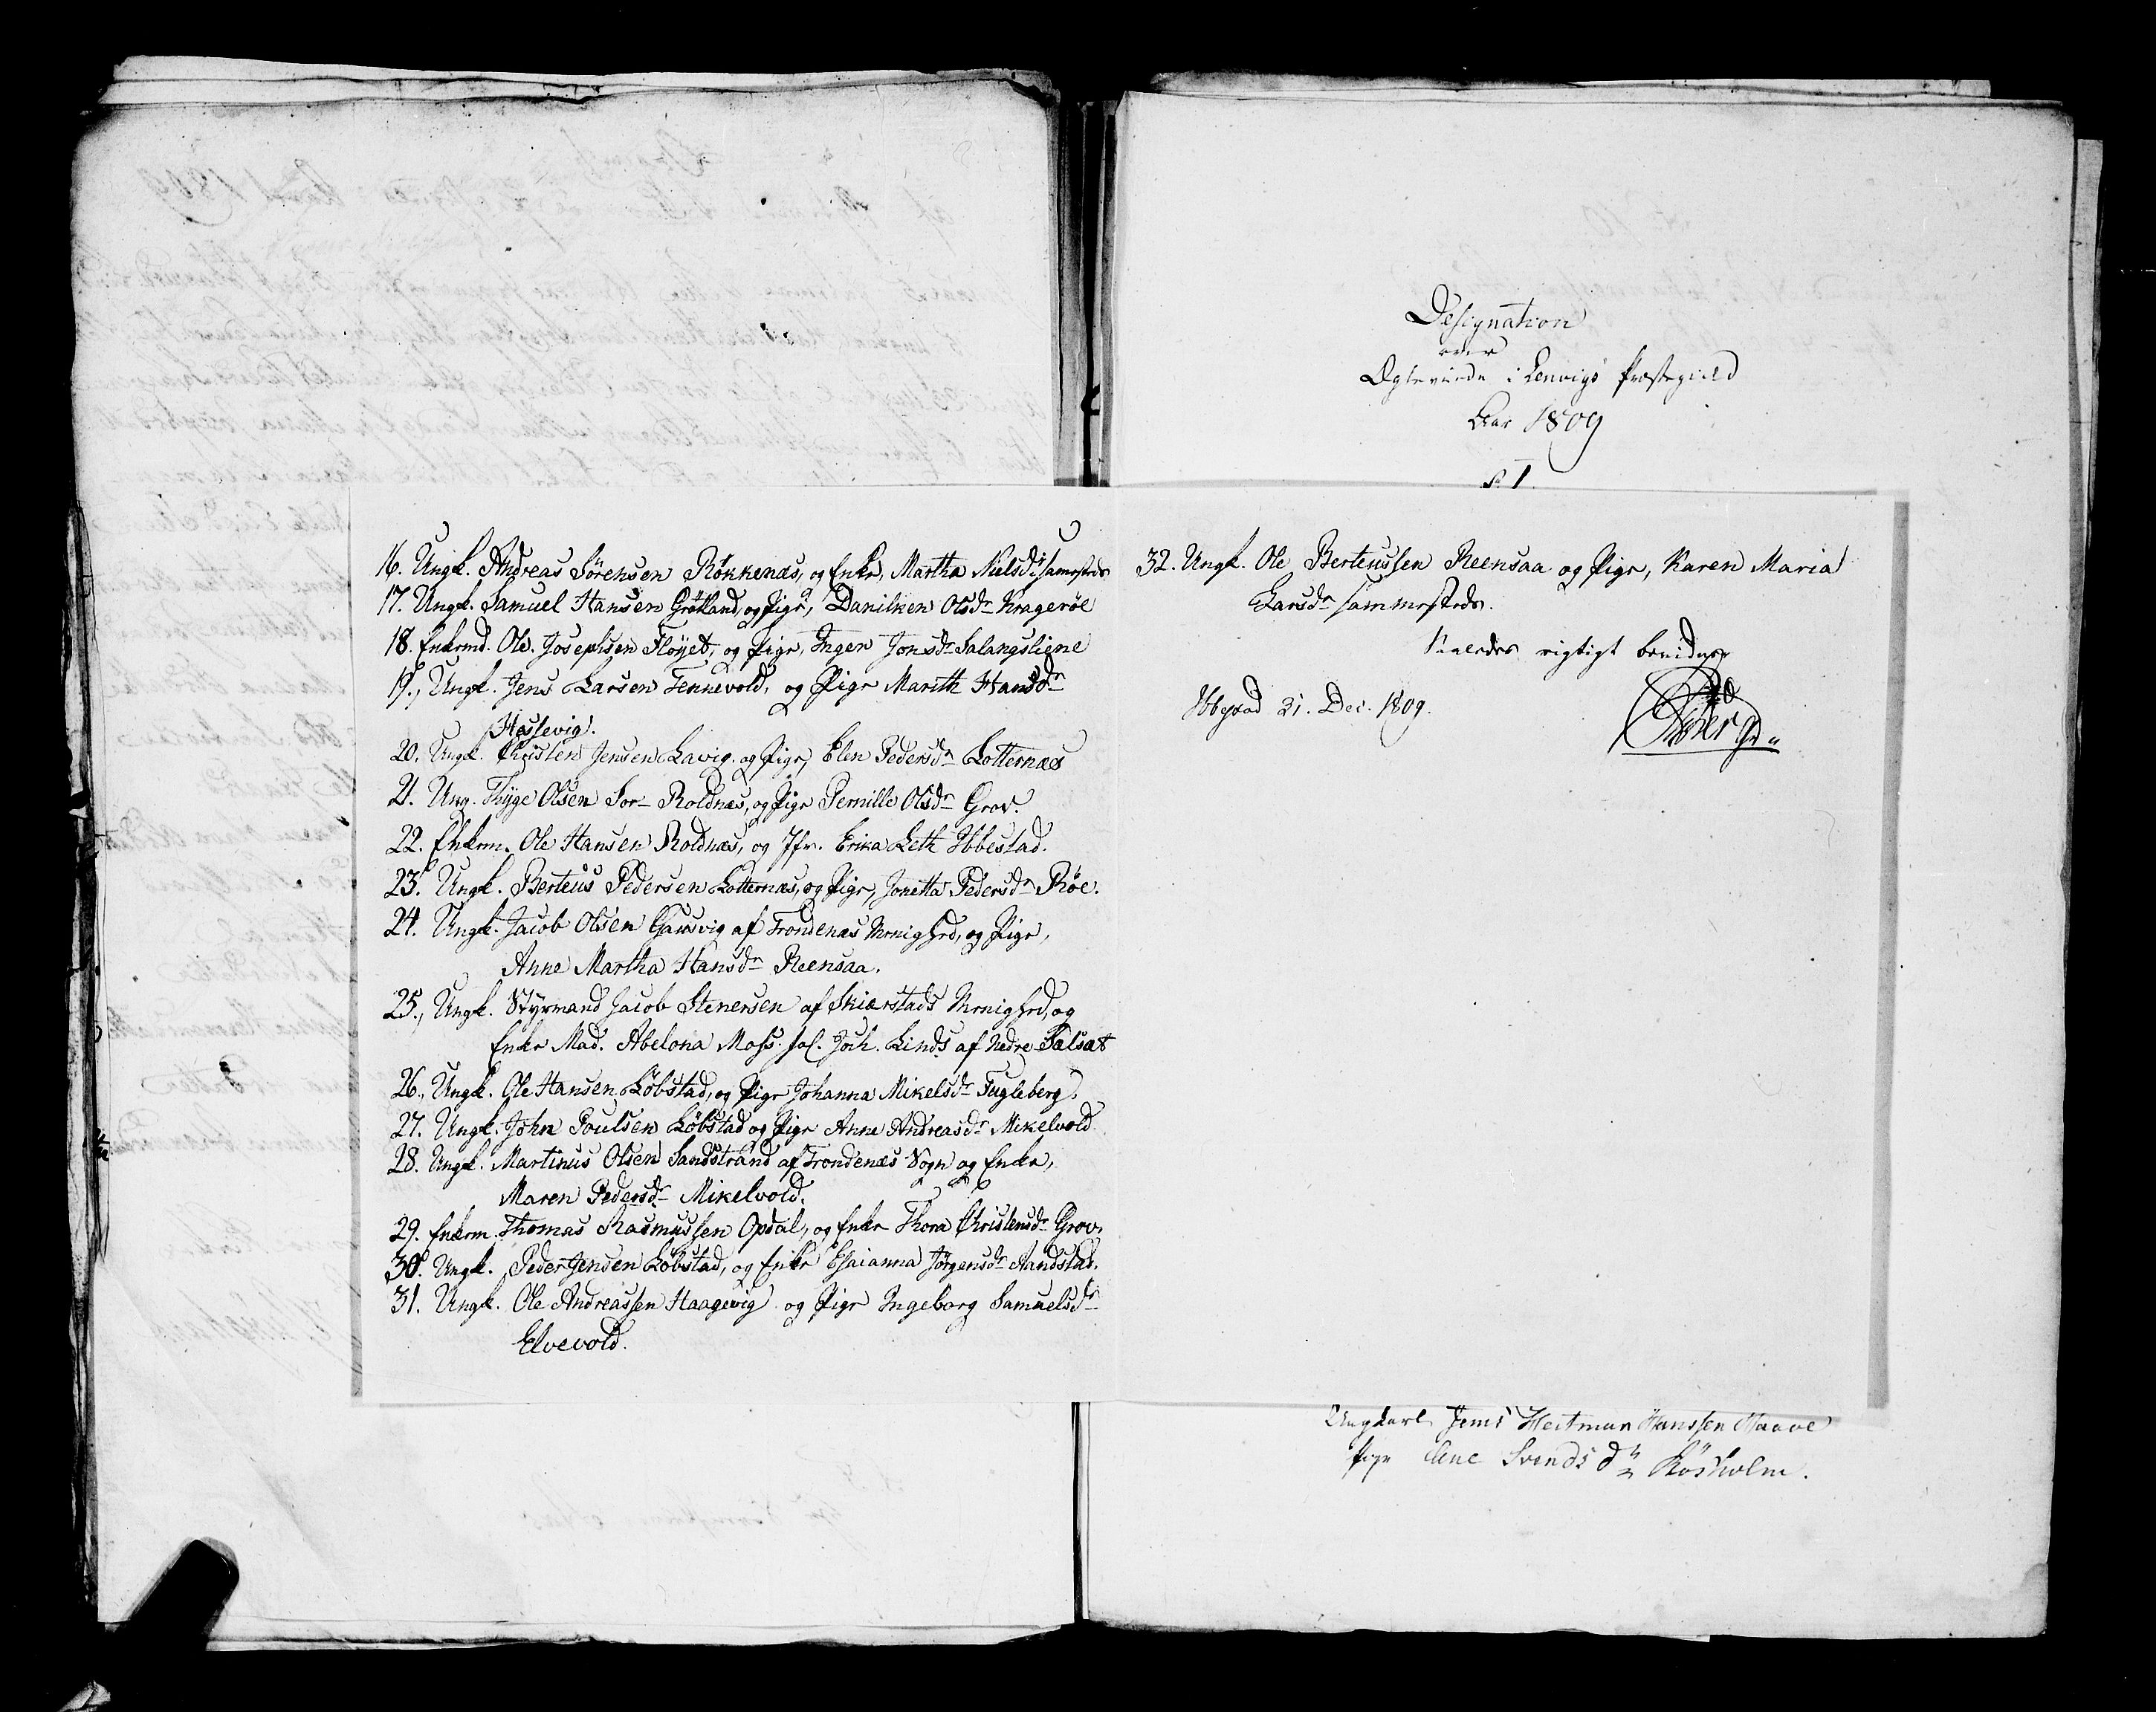 16. Ungk. Andreas Sörensen Rökkenæs, og Enke, Martha Nielsdr samesteds
17. Ungk. Samuel Hansen Grötland, og Pige, Daniken Olsdr Kragerøe
18. Enkemd. Ole Josephsen Fløyet, og Pige, Inger Jonsdr Salangsligne
19., Ungk. Jens Larsen Tennevold, og Pige Marith Hansdr
Haslevig.
20. Ungk. Christen Jensen Lavig. og Pige, Elen Pedersdr Lotternæs
21. Ung. Thyge Olsen Sor- Roldnæs, og Pige Pernille Olsdr Grov.
22. Enkem. Ole Hansen Roldnæs, og Jfr. Erika Leth Ibbestad.
23. Ungk. Berteus Pedersen Lotternæs, og Pige, Jonetta Pedersdr Røe.
24. Ungk. Jacob Olsen Gausvig af Trondenæs Menighed, og Pige,
Anne Martha Hansdr Reensaa.
25., Ungk. Styrmand Jacob Stenersen af Skiærstads Menighed, og
Enke Mad. Abelona Moss. sal. Joh. Linds af Nedre Salsat
26., Ungk. Ole Hansen Löbstad, og Pige Johanna Mikelsdr Fugleberg.
27. Ungk. John Poulsen Löbstad og Pige Anne Andreasdr Mikelvold
28. Ungk. Martinus Olsen Sandstrand af Trondenæs Sogn og Enke,
Maren Pedersdr Mikelvold.
29. Enkem. Thomas Rasmussen Opdal, og Enke Thora Christensdr Grov.
30. Ungk. Peder Jensen Löbstad, og Enke Esaianna Jörgensdr Aandstad.
31. Ungk. Ole Andreassen Haagevig og Pige Ingeborg Samuelsdr
Elvevold.
Designation
over
Ægteviede i Lenvigs Præstegield
Aar 1809
N. 1.
32. Ungk. Ole Berteussen Reensaa og Pige, Karen Maria
Larsdr sammesteds.
Saaledes rigtigt bevidner
Ibbestad 21. Dec. 1809.
Ungkarl Jens Heitman Hanssen Haave
Pige Ane Svendsdr Kösholm.